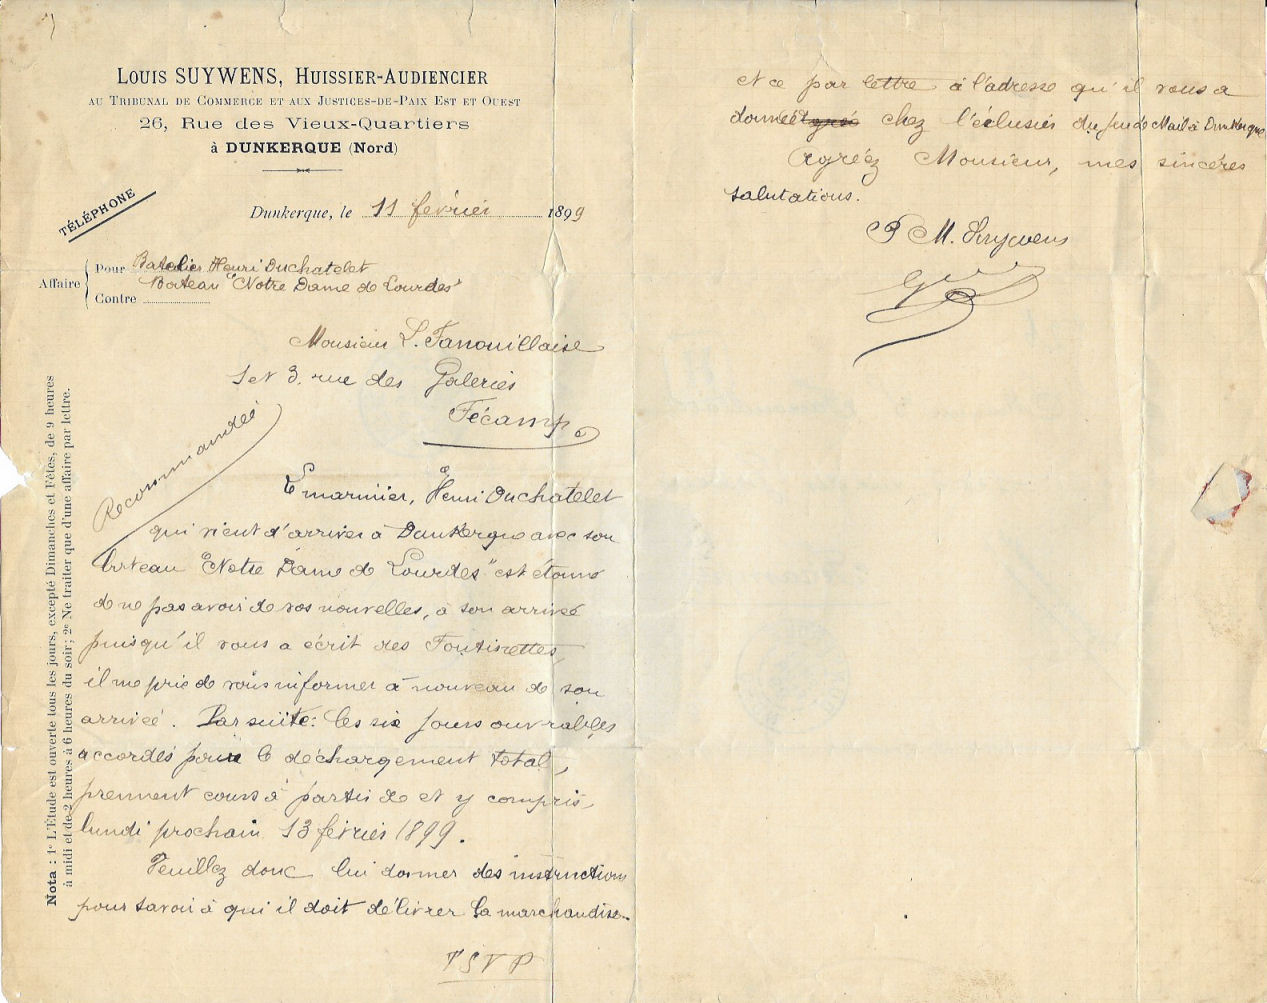 LOUIS SUYWENS, HUISSIER-AUDIENCIER
AU TRIBUNAL DE COMMERCE ET AUX JUSTICES-DE-PAIX EST ET OUEST
26, Rue des Vieux-Quartiers
à DUNKERQUE (Nord)
TÉLÉPHONE
Dunkerque, le 11 février 1899
Affaire
Pour Batelier Henri Duchatelet
Bateau "Notre Dame de Lourdes"
Contre
Monsieur L. Fanouillaise
1 et 3. rue des Galeries
Fécamp
Recommandée
Le marinier, Henri Duchatelet
qui vient d'arriver à Dunkerque avec son
bateau "Notre Dame de Lourdes" est étonné
de ne pas avoir de vos nouvelles, à son arrivée
puisqu'il vous a écrit des Fontinettes,
il me prie de vous informer à nouveau de son
arrivée. Par suite: les six jours ouvrables
accordés pour le déchargement total,
prennent cours à partir de et y compris,
lundi prochain 13 février 1899.
Veuillez donc lui donner des instructions
pour savoir à qui il doit délivrer la marchandise.
TSVP
Nota : 1º L'Étude est ouverte tous les jours, excepté Dimanches et Fêtes, de 9 heures
à midi et de 2 heures à 6 heures du soir; 2º Ne traiter que d'une affaire par lettre.
et ce par lettre à l'adresse qu'il vous a
donnée chez l'éclusier du jeu de Mail à Dunkerque
Agréez Monsieur, mes sincères
salutations.
M. Suywens